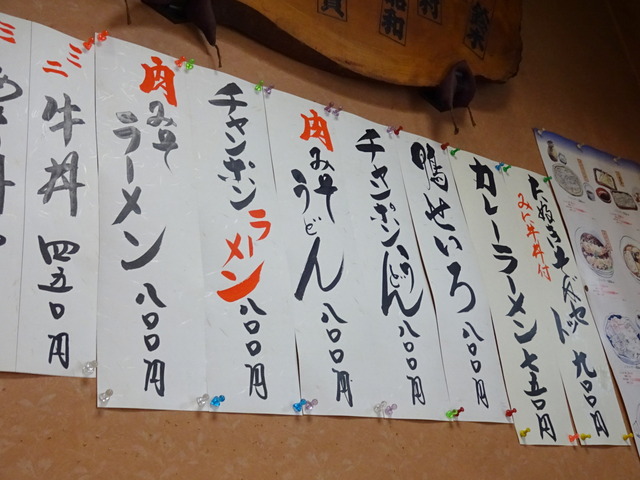 たぬき
ミニ牛丼付
九〇〇円
カレーラーメン 七五〇円
鴨せいろ 八〇〇円
チャンポンうどん 八〇〇円
肉みそうどん 八〇〇円
チャンポンラーメン 八〇〇円
肉みそラーメン 八〇〇円
ミニ牛丼 四五〇円
昭和